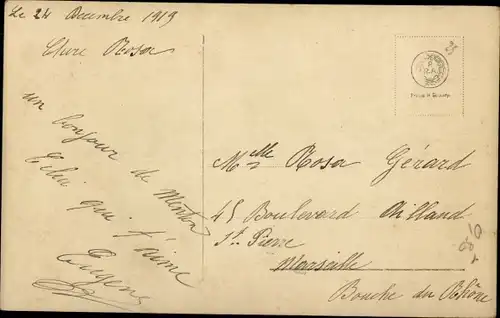 Le 24 Decembre 1919
Chere Rosa
un bonjour de Menton
Celui qui t'aime
Eugene
Melle Rosa Gérard
45 Boulevard Ailland
St. Pierre
Marseille
Bouche du Rhône